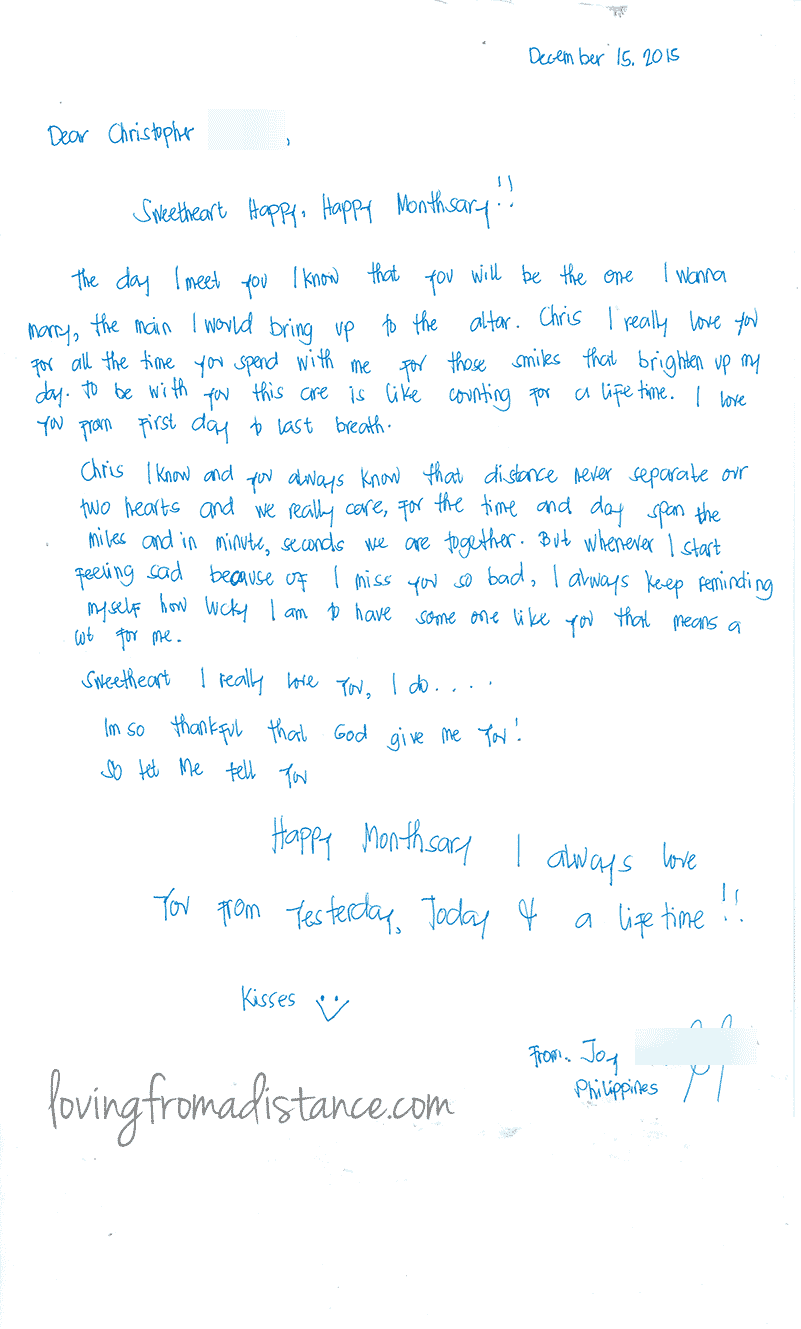 December 15. 2015
Dear Christopher ,
Sweetheart Happy, Happy Monthsary!!
The day I meet you I know that you will be the one I wanna
marry, the main I would bring up to the altar. Chris I really love you
for all the time you spend with me for those smiles that brighten up my
day. To be with you this are is like counting for a life time. I love
you from first day to last breath.
Chris I know and you always know that distance never separate our
two hearts and we really care, for the time and day span the
miles and in minute, seconds we are together. But whenever I start
feeling sad because of I miss you so bad, I always keep reminding
myself how lucky I am to have some one like you that means a
lot for me.
Sweetheart I really love you, I do.....
Im so thankful that God give me you!
So let me tell you
Happy Monthsary I always love
you from yesterday, Today & a life time!!
Kisses
From. Joy
Philippines
lovingfromadistance.com